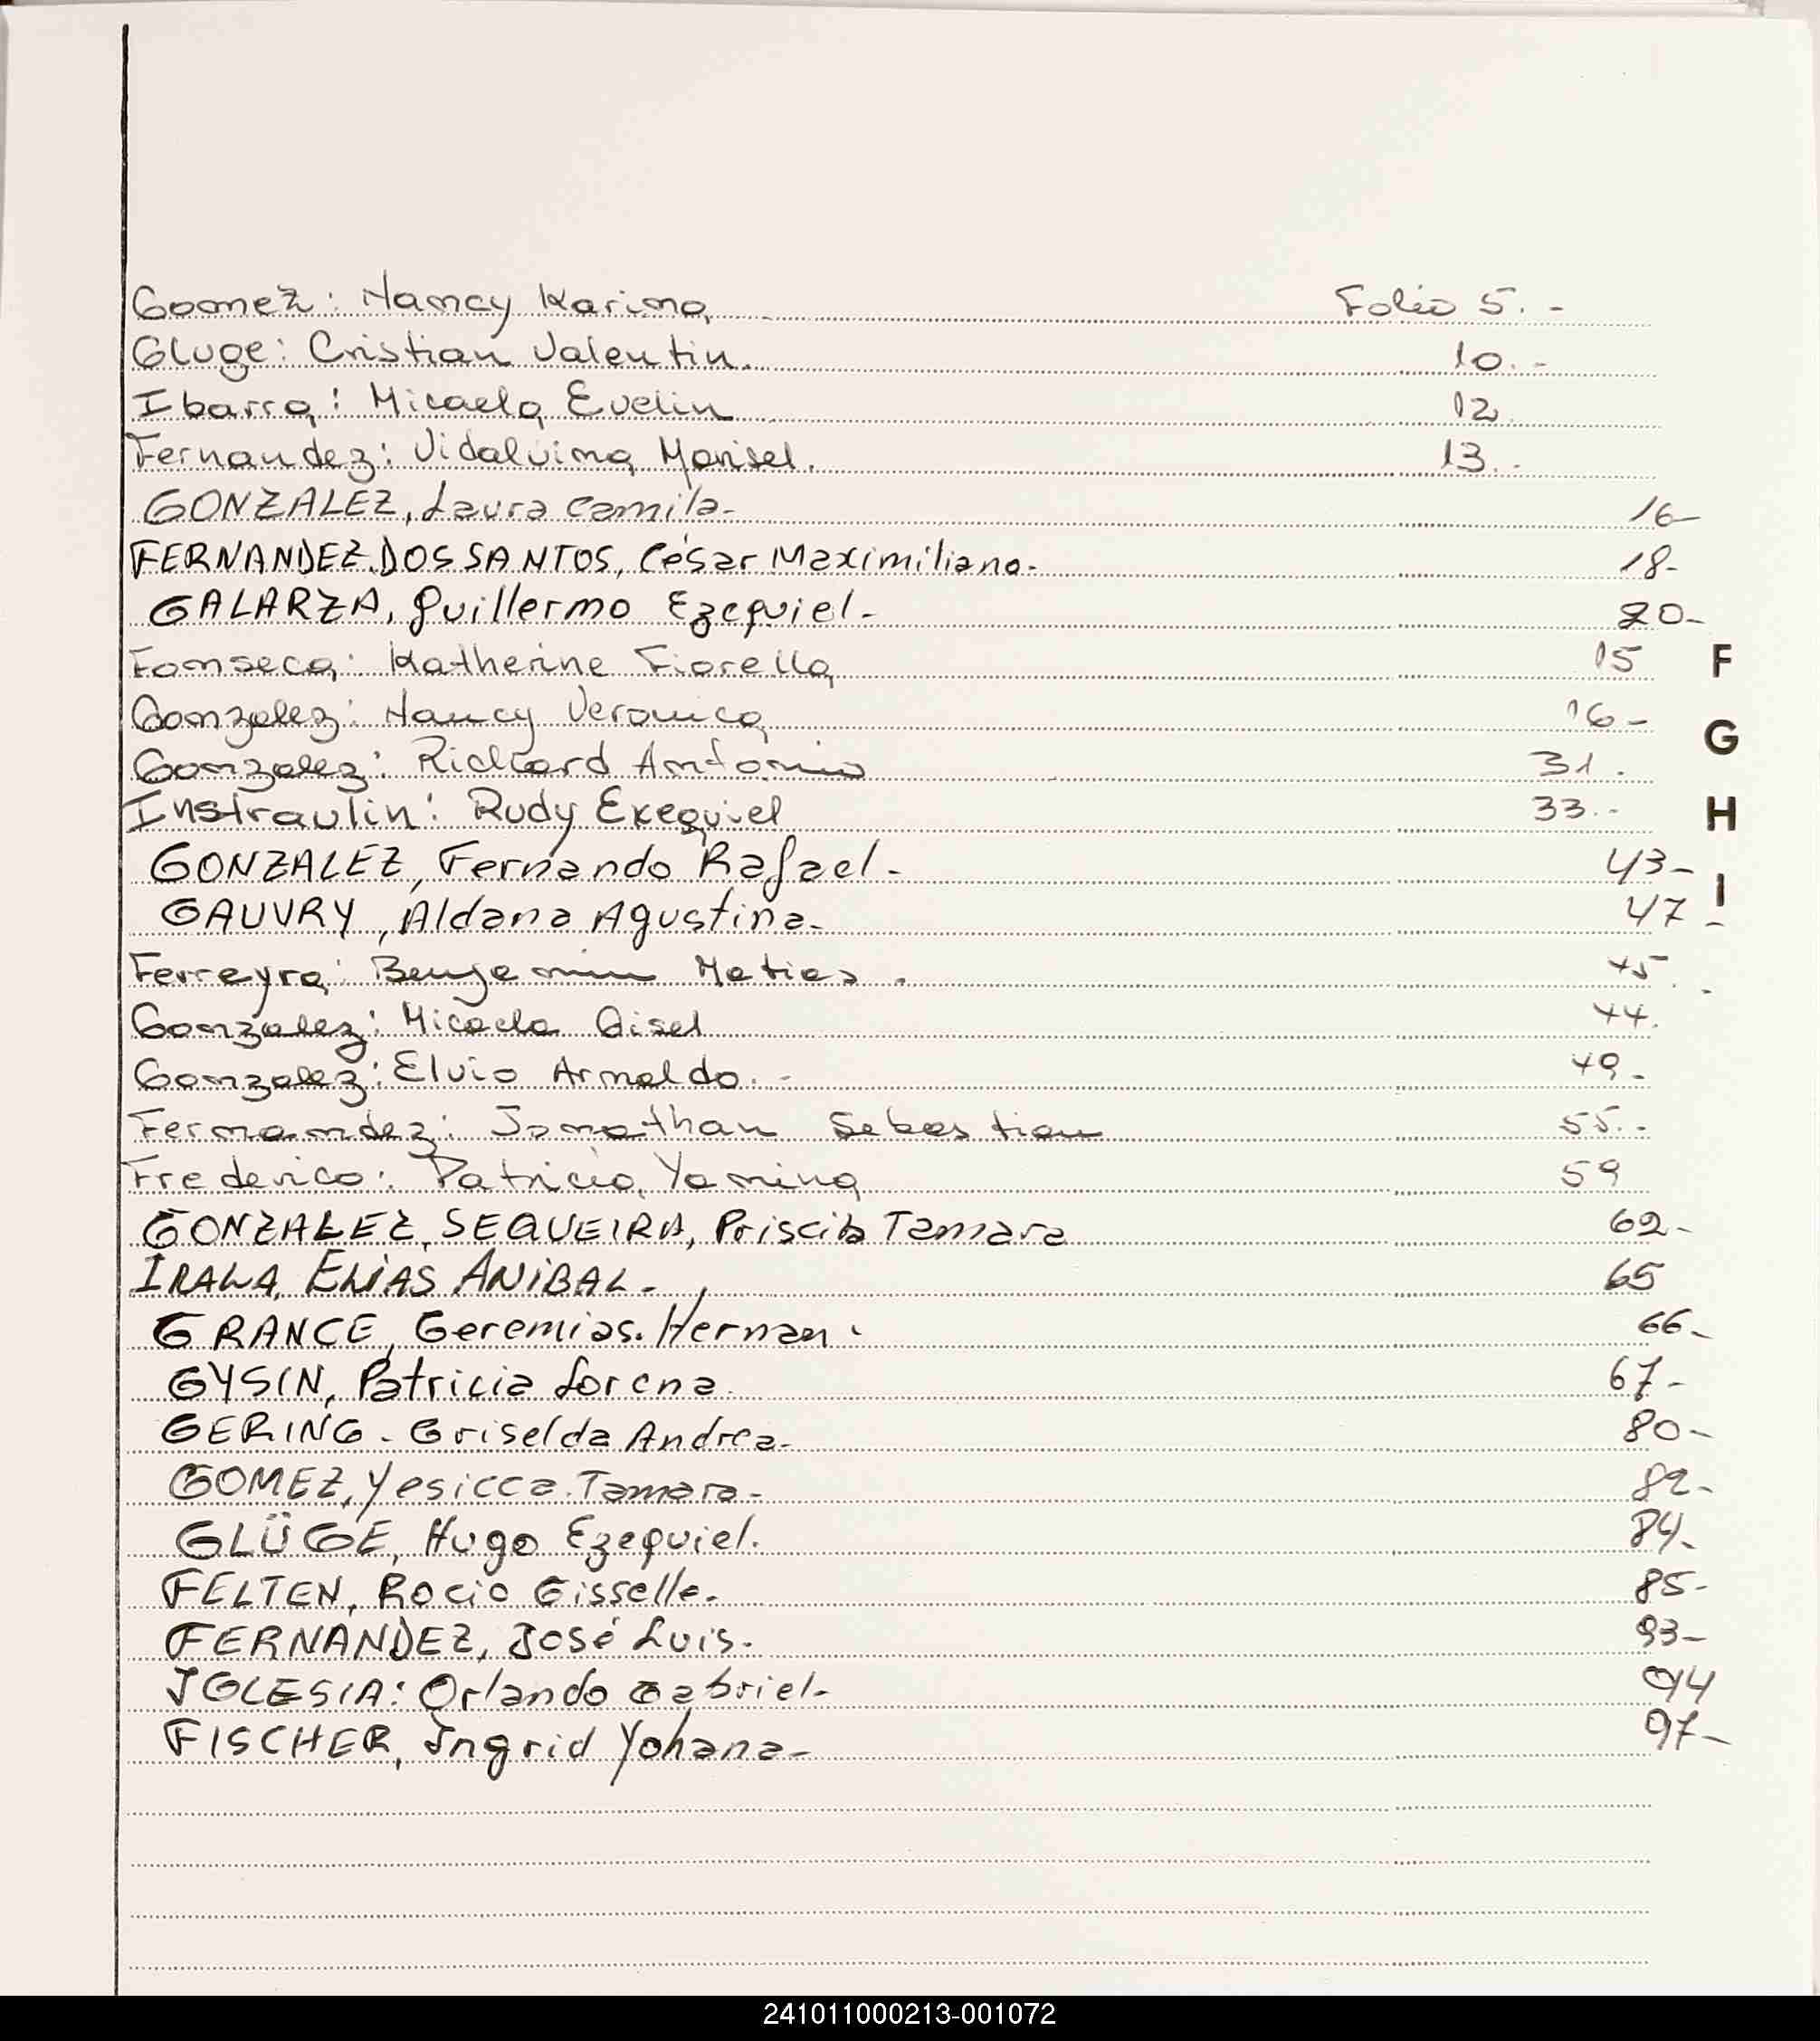 Gomez: Nancy Karina Folio 5. -
Gluge: Cristian Valentin. 10. -
Ibarra: Micaela Evelin 12.
Fernandez: Vidalvina Marisel. 13. -
GONZALEZ, Laura Camila- 16-
FERNANDEZ DOS SANTOS, César Maximiliano- 18-
GALARZA, Guillermo Ezequiel- 20-
Fonseca: Katherine Fiorella 15 F
Gonzalez: Nancy Veronica 16- G
Gonzalez: Richard Antonio 31.
Instraulin: Rudy Exequiel 33.- H
GONZALEZ, Fernando Rafael- 43-
GAUVRY, Aldana Agustina- 47- I
Ferreyra: Benjamin Matias. 45. -
Gonzalez: Micaela Gisel 44.
Gonzalez: Elvio Arnaldo. - 49-
Fernandez: Jonathan Sebastian 55.-
Frederico: Patricia Yanina 59
GONZALEZ, SEQUEIRA, Priscila Tamara 62-
IRALA, ELIAS ANIBAL- 65
GRANCE, Geremias. Hernan. 66-
GYSIN, Patricia Lorena 67-
GERING- Griselda Andrea- 80-
GOMEZ, Yesicca Tamara- 82-
GLÜGE, Hugo Ezequiel. 84-
FELTEN, Rocio Gisselle- 85-
FERNANDEZ, José Luis- 93-
IGLESIA: Orlando Gabriel- 94
FISCHER, Ingrid Yohana- 97-
241011000213-001072